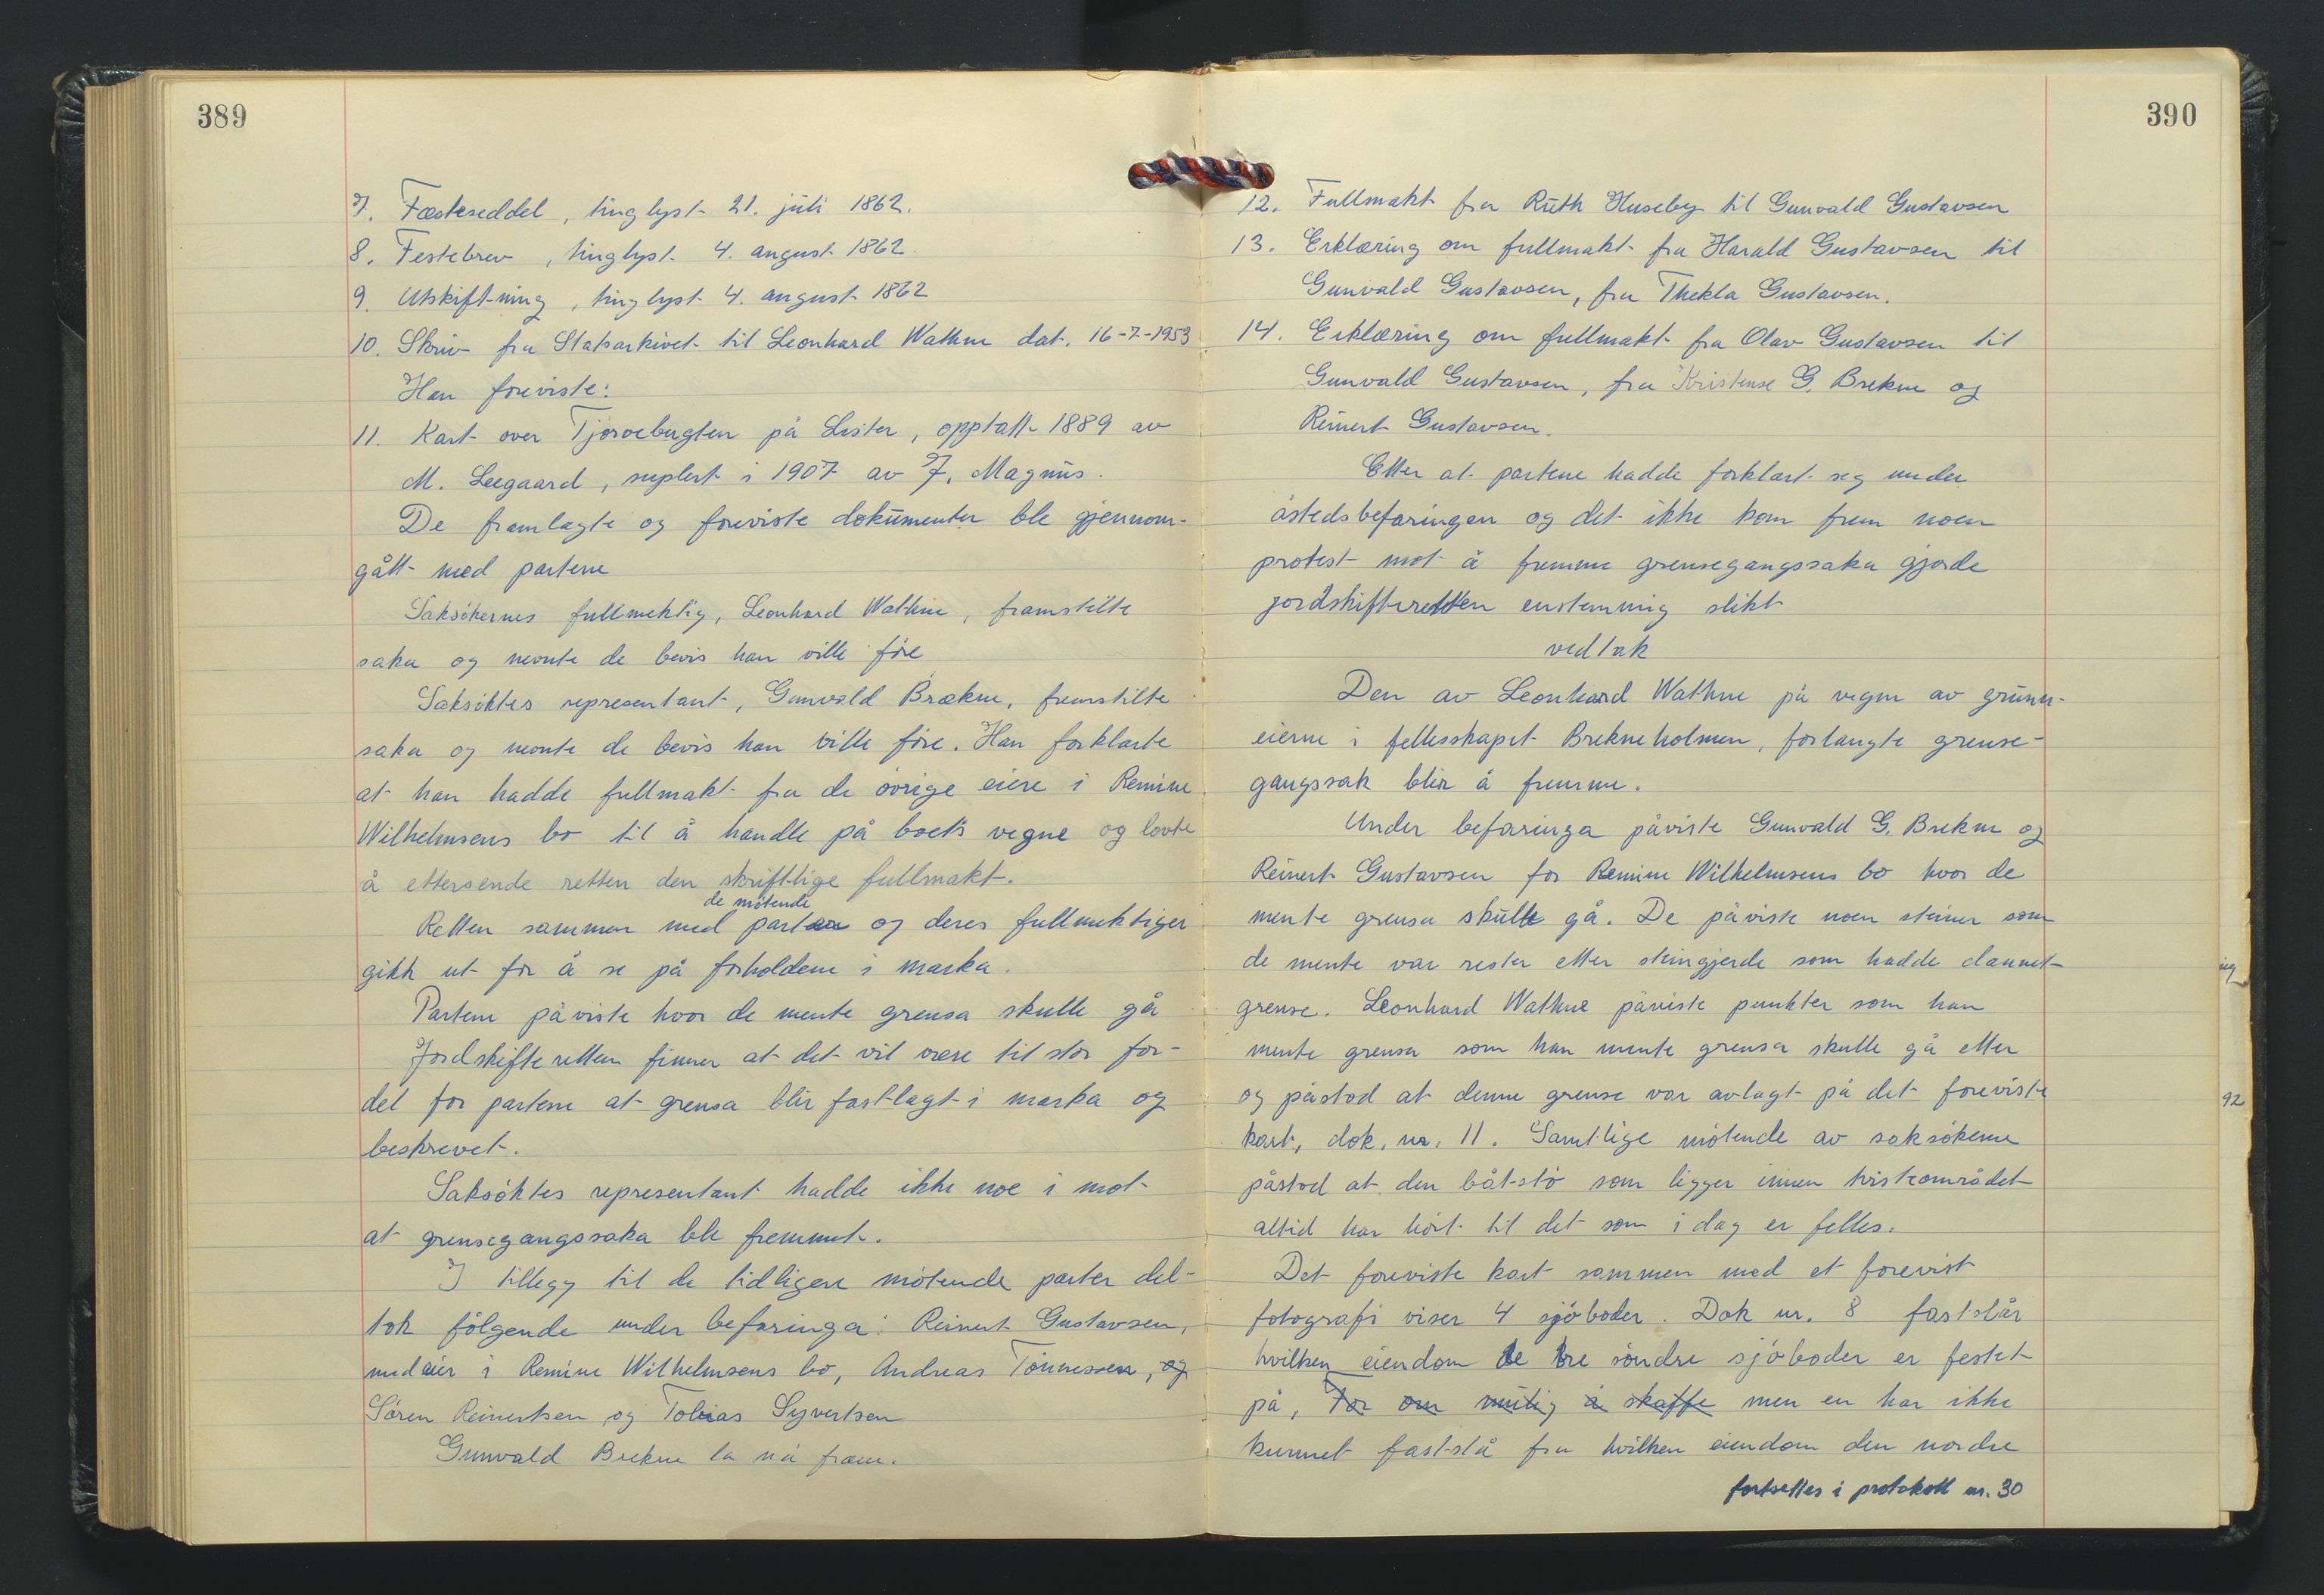 389
7. Festeseddel, tinglyst 21. juli 1862.
8. Festebrev, tinglyst 4. august 1862.
9. Utskiftning, tinglyst 4. august 1862
10. Skriv fra Statsarkivet til Leonhard Wathne dat. 16-7-1953
Han foreviste:
11. Kart over Tjørvebugten på Lister, opptatt 1889 av
M. Leegaard, suplert i 1907 av J. Magnus.
De framlagte og foreviste dokumenter ble gjennom-
gått med partene
Saksøkernes fullmektig, Leonhard Wathne, framstilte
saka og nevnte de bevis han ville føre
Saksøktes representant, Gunvald Brækne, fremstilte
saka og nevnte de bevis han ville føre. Han forklarte
at han hadde fullmakt fra de øvrige eiere i Remine
Wilhelmsens bo til å handle på boets vegne og lovte
å ettersende retten den skriftlige fullmakt.
de møtende
Retten sammen med parter og deres fullmektiger
gikk ut for å se på forholdene i marka.
Partene påviste hvor de mente grensa skulle gå
Jordskifteretten finner at det vil være til stor for-
del for partene at grensa blir fastlagt i marka og
beskrevet.
Saksøktes representant hadde ikke noe i mot
at grensegangssaka ble fremmet.
I tillegg til de tidligere møtende parter del-
tok følgende under befaringa: Reinert Gustavsen,
medeier i Remine Wilhelmsens bo, Andreas Tønnessen, og
Søren Reinertsen og Tobias Syvertsen
Gunvald Brekne la nå fram.
390
12. Fullmakt fra Ruth Huseby til Gunvald Gustavsen
13. Erklæring om fullmakt fra Harald Gustavsen til
Gunvald Gustavsen, fra Thekla Gustavsen.
14. Erklæring om fullmakt fra Olav Gustavsen til
Gunvald Gustavsen, fra Kristense G. Brekne og
Reinert Gustavsen.
Etter at partene hadde forklart seg under
åstedsbefaringen og det ikke kom frem noen
protest mot å fremme grensegangssaka gjorde
jordskifteretten enstemmig slikt
vedtak
Den av Leonhard Wathne på vegne av grunn-
eierne i fellesskapet Brekneholmen, forlangte grense-
gangssak blir å fremme.
Under befaringa påviste Gunvald G. Brekne og
Reinert Gustavsen for Remine Wilhelmsens bo hvor de
mente grensa skulle gå. De påviste noen steiner som
de mente var rester etter steingjerde som hadde dannet
grense. Leonhard Wathne påviste punkter som han
mente grensa som han mente grensa skulle gå etter
og påstod at denne grense var avlagt på det foreviste
kart, dok. nr. 11. Samtlige møtende av saksøkerne
påstod at den båtstø som ligger innen tvisteområdet
altid har hørt til det som i dag er felles.
Det foreviste kart sammen med et forevist
fotografi viser 4 sjøboder. Dok nr. 8 fastslår
hvilken eiendom de tre søndre sjøboder er festet
på, For om mulig å skaffe men en har ikke
kunnet fastslå fra hvilken eiendom den nordre
fortsettes i protokoll nr. 30
92